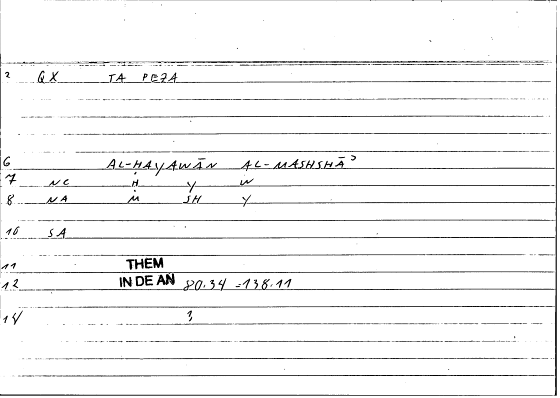 2 QX TA PEZA
6 AL-ḤAYAWĀN AL-MASHSHĀʾ
7 NC Ḥ Y W
8 NA M SH Y
10 SA
11 THEM
12 IN DE AN 80.34 -138.11
14 3